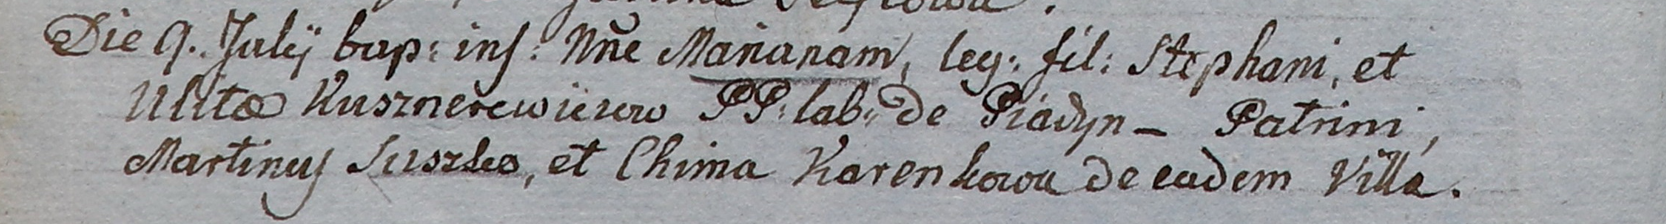 Die 9. Julij bap: inf: Nne Marianam, leg: fil: Stephani, et
Ulitæ Kusznerewiczow PP: lab: de Piadyn – Patrini,
Martinus Suszko, et Chima Karenkowa de eadem Villa.